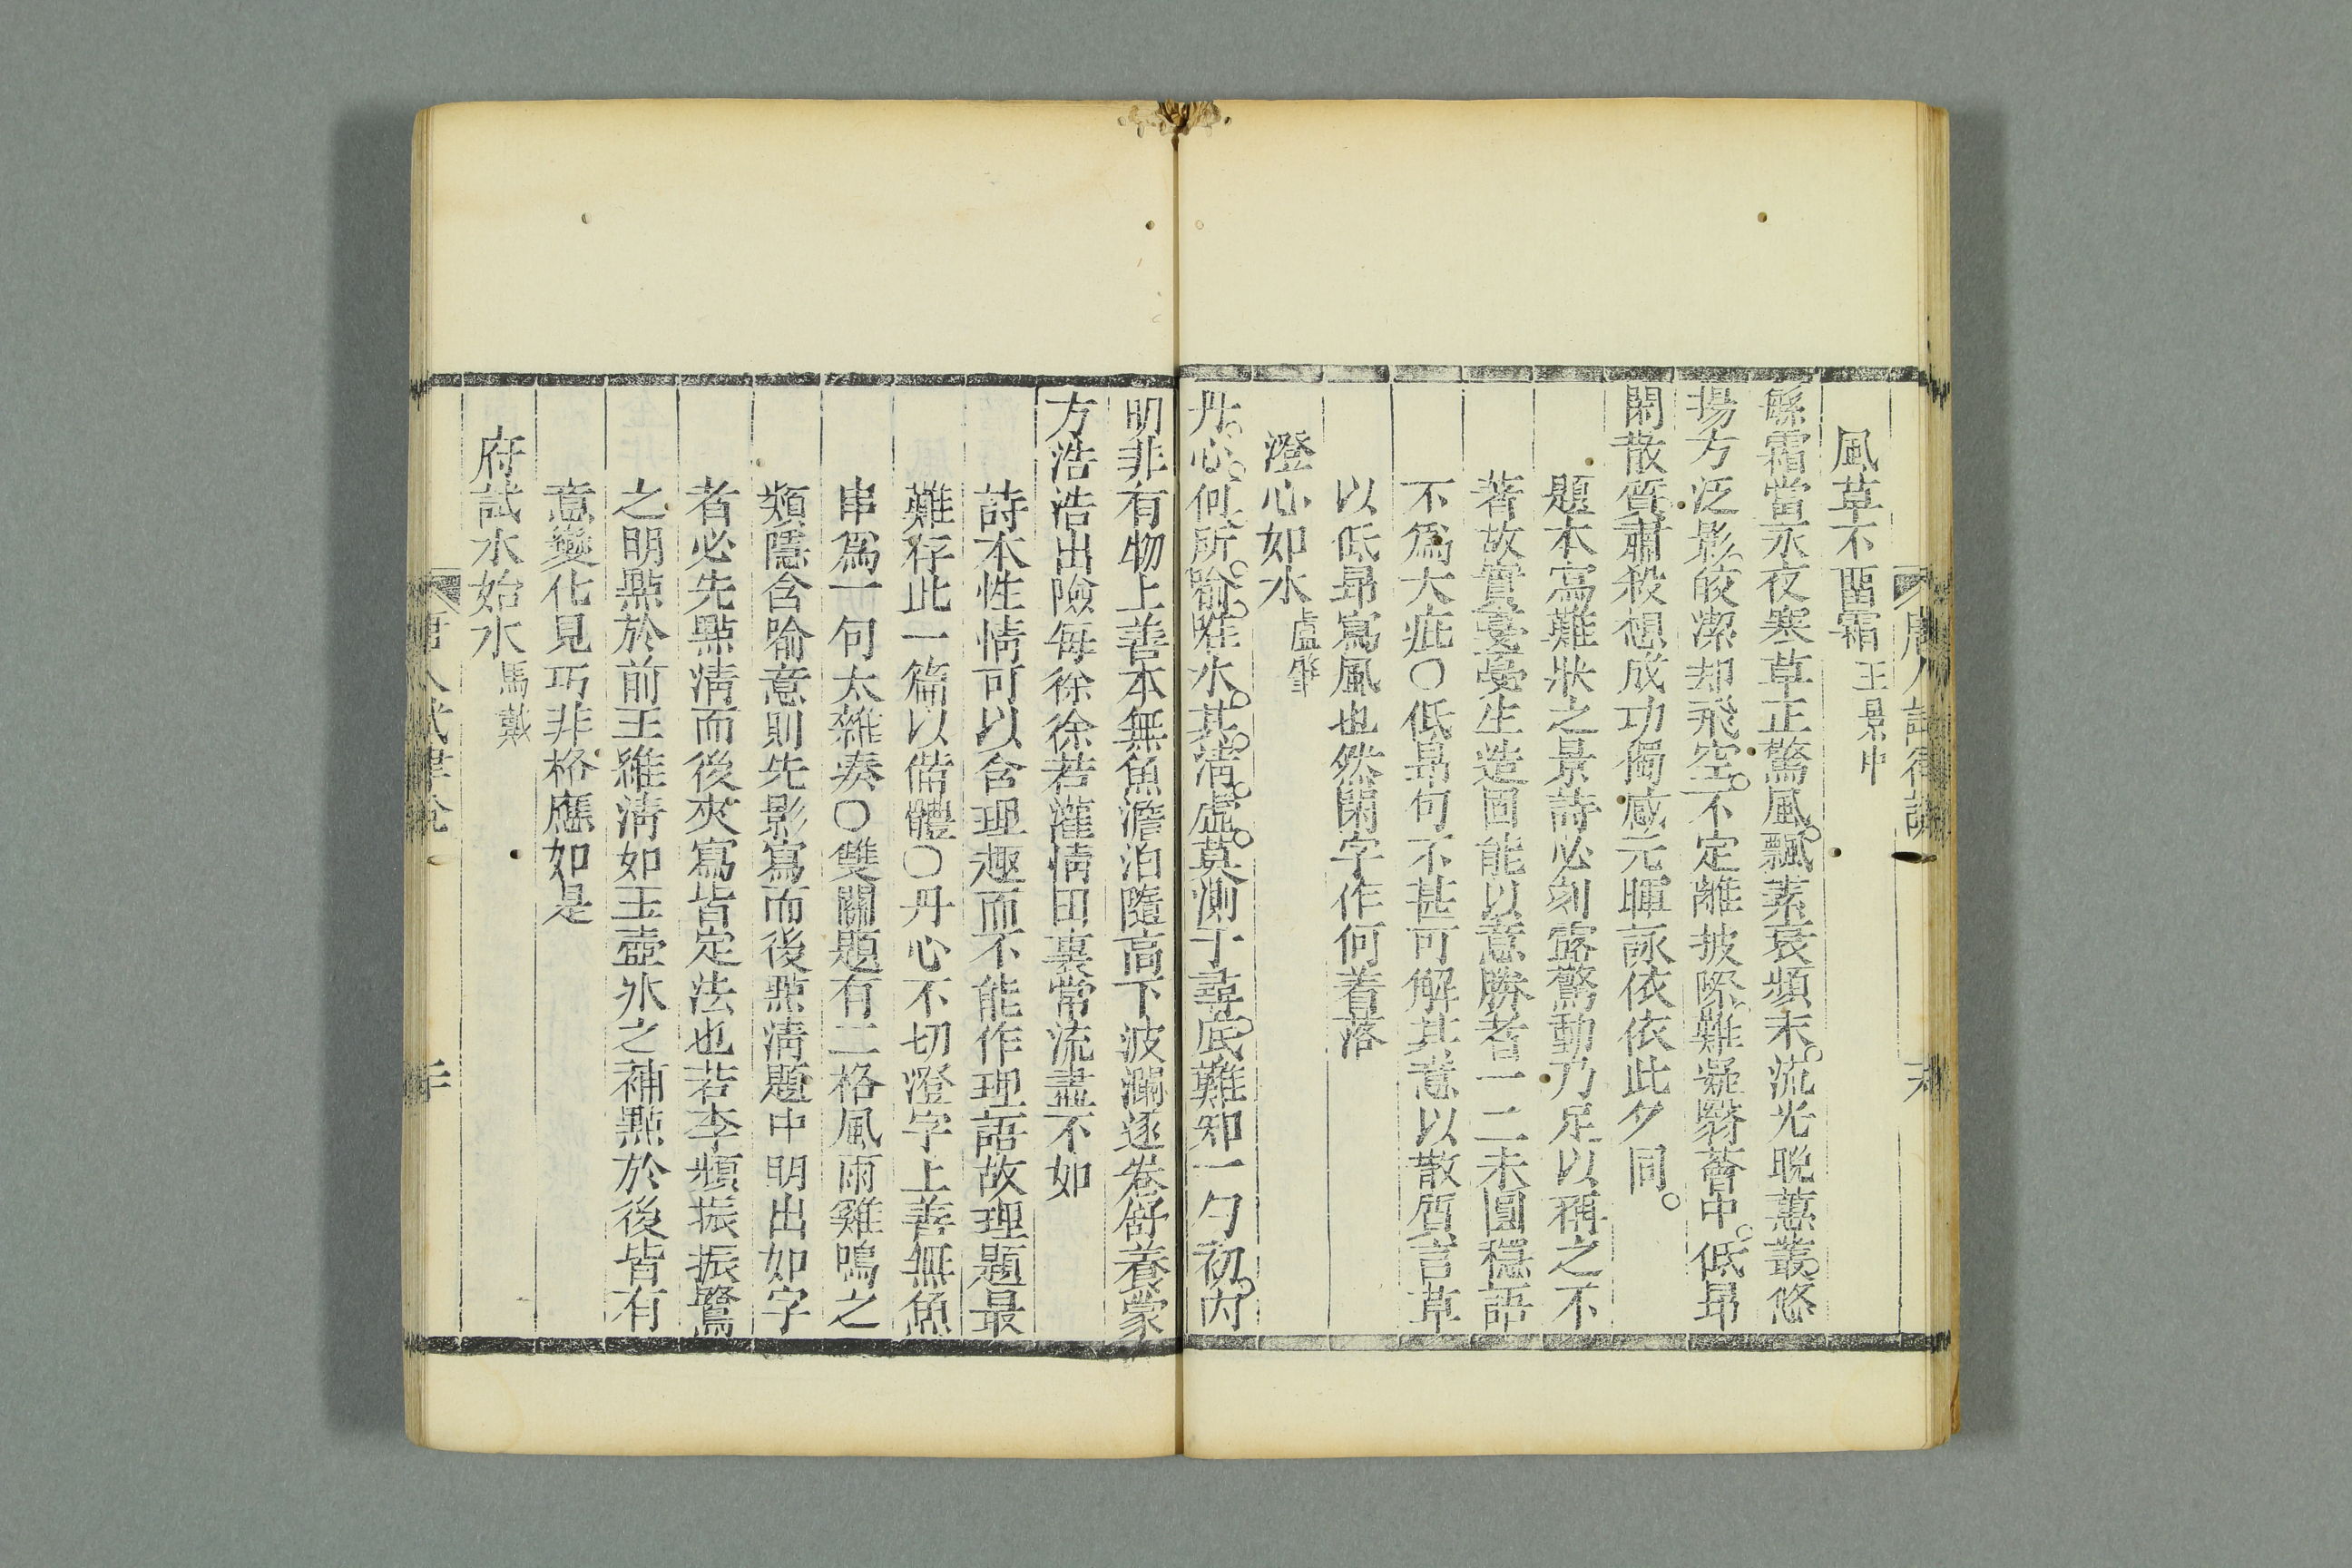 風草不畱霜王景中
繇霜當永夜寒草正驚風飄素衰蘋末流光晚蕙叢悠
揚方泛影皎潔却飛空不定離披際難凝翳薈中低昻
閑散質肅殺想成功獨感元暉詠依依此夕同
題本寫難狀之景詩必刻露驚動乃足以稱之不
著故實憂憂生造固能以意勝者一二未圓穩語
不爲大疵○低昻句不甚可解其意以散質言草
以低昻寫風也然閑字作何着落
澄心如水盧肇
丹心何所喻唯水其淸虛莫測千尋底難知一勺初內
明非有物上善本無魚澹泊隨高下波瀾逐卷舒養蒙
方浩浩出險每徐徐若灌情田裏常流盡不如
詩本性情可以含理趣而不能作理語故理題最
難存此一篇以備體○丹心不切澄字上善無魚
串爲一句太雜湊○雙關題有二格風雨雞鳴之
類隱含喻意則先影寫而後點淸題中明出如字
者必先點淸而後夾寫皆定法也若李頻振振鷺
之明點於前王維淸如玉壺氷之補點於後皆有
意變化見巧非格應如是
府試水始氷馬戴
唐人試律說